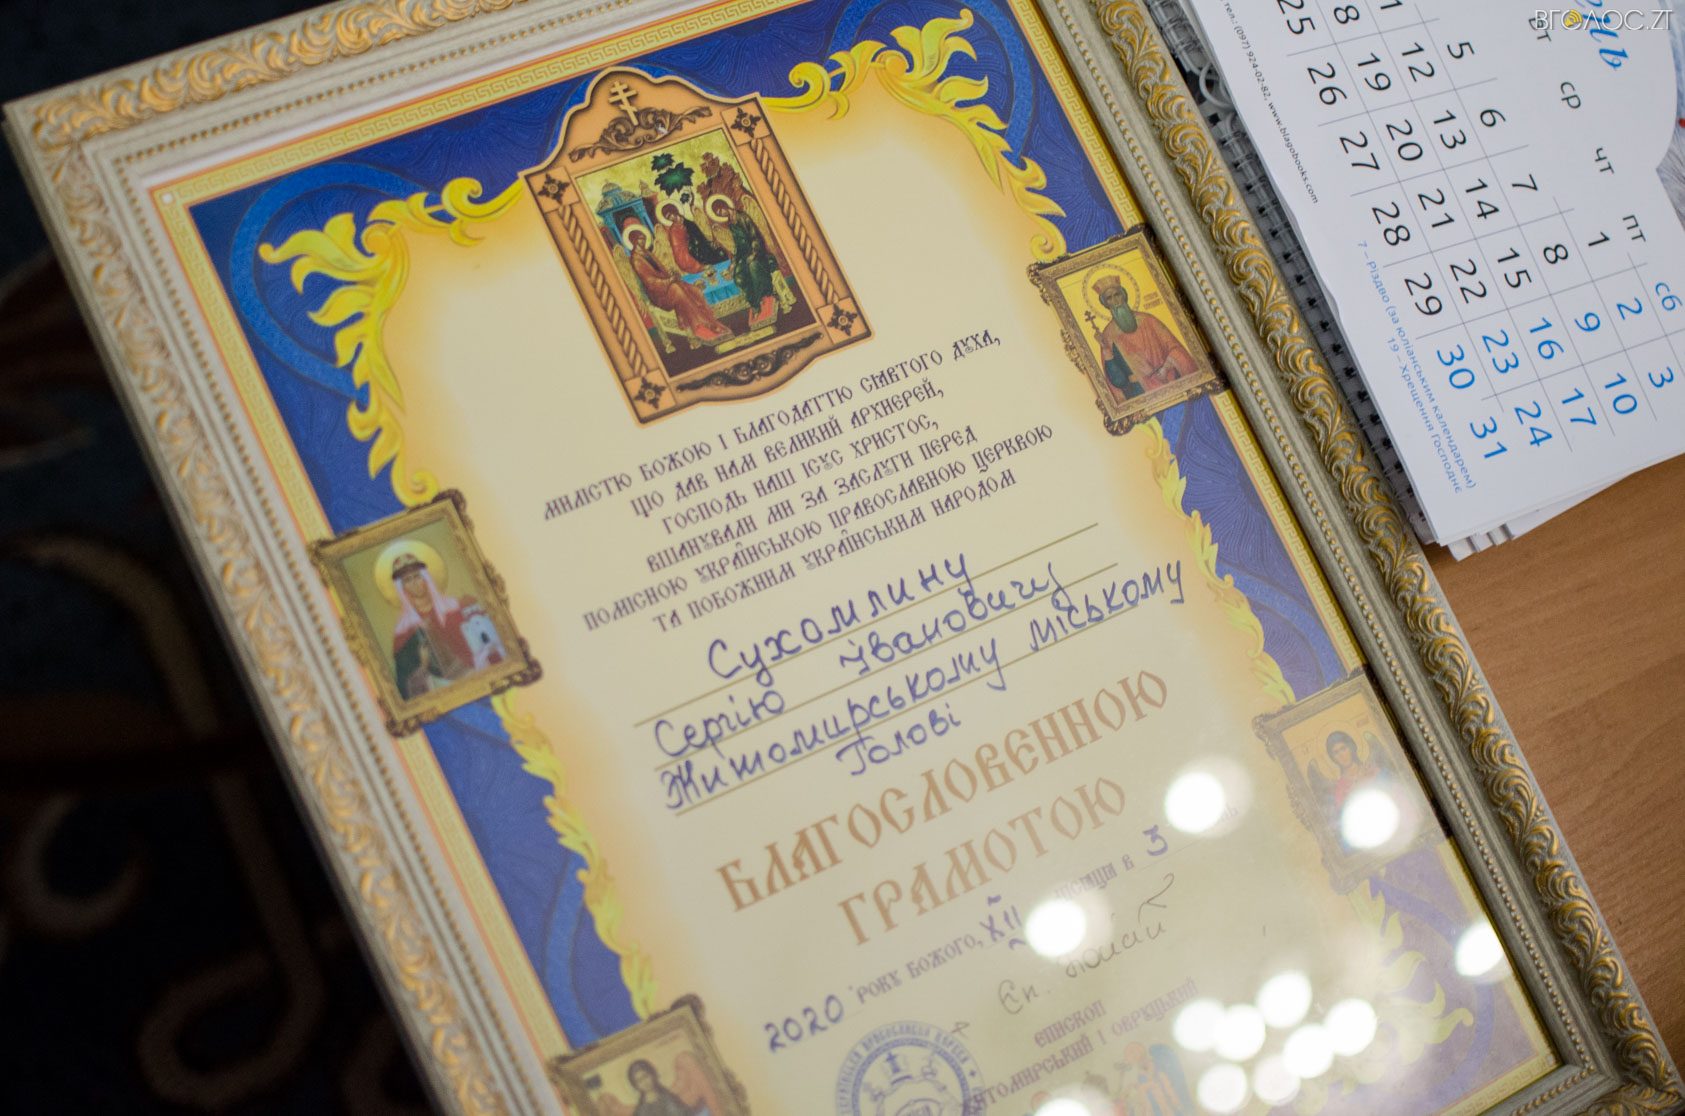 МИЛІСТЮ БОЖОЮ І БЛАГОДАТТЮ СВЯТОГО ДУХА,
ЩО ДАВ НАМ ВЕЛИКИЙ АРХИЄРЕЙ,
ГОСПОДЬ НАШ ІСУС ХРИСТОС,
ВШАНУВАЛИ МИ ЗА ЗАСЛУГИ ПЕРЕД
ПОМІСНОЮ УКРАЇНСЬКОЮ ПРАВОСЛАВНОЮ ЦЕРКВОЮ
ТА ПОБОЖНИМ УКРАЇНСЬКИМ НАРОДОМ
Сухомлину
Сергію Івановичу
Житомирському міському
Голові
БЛАГОСЛОВЕННОЮ
ГРАМОТОЮ
2020 РОКУ БОЖОГО, XII МІСЯЦЯ В 3
Єп. Паісій
ЄПИСКОП
ЖИТОМИРСЬКИЙ І ОВРУЦЬКИЙ
ВГОЛОС.ZT
тел.: (097) 924-02-82, www.blagobooks.com
вт
ср 6 13 20 27
чт 7 14 21 28
пт 1 8 15 22 29
сб 2 9 16 23 30
3 10 17 24 31
5 12 19 26
25
7 – Різдво (за юліанським календарем)
19 – Хрещення Господнє